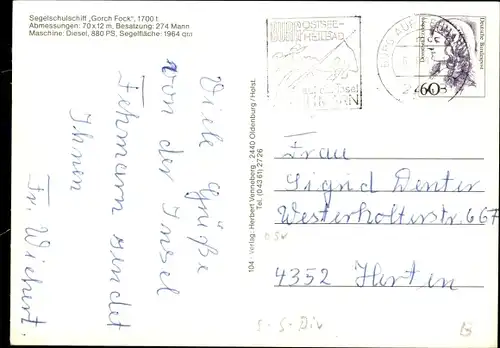 Segelschulschiff „Gorch Fock“, 1700 t
Abmessungen: 70x12 m, Besatzung: 274 Mann
Maschine: Diesel, 880 PS, Segelfläche: 1964 qm
Viele Grüße
von der Insel
Fehmarn sendet
Ihnen
Fr. Wiehert.
104 Verlag: Herbert Venneberg 2440 Oldenburg/Holst.
Tel. (04361) 2726
OSTSEE-
HEILBAD
auf der Insel
BURG AUF
60
Deutsche Bundespost
Frau
Sigrid Denter
Westerholterstr. 667
4352 Herten
S-S-Div